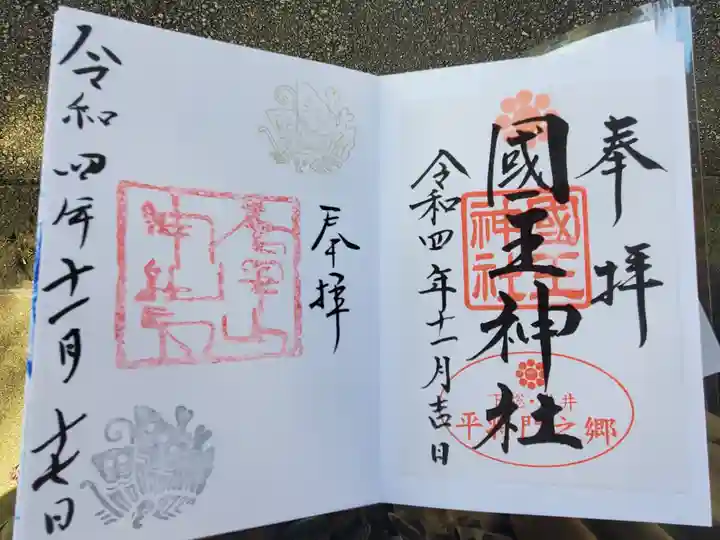 奉拝
國王神社
國王
神社
平将門之郷
令和四年十一月吉日
奉拝
神社
令和四年十一月十七日